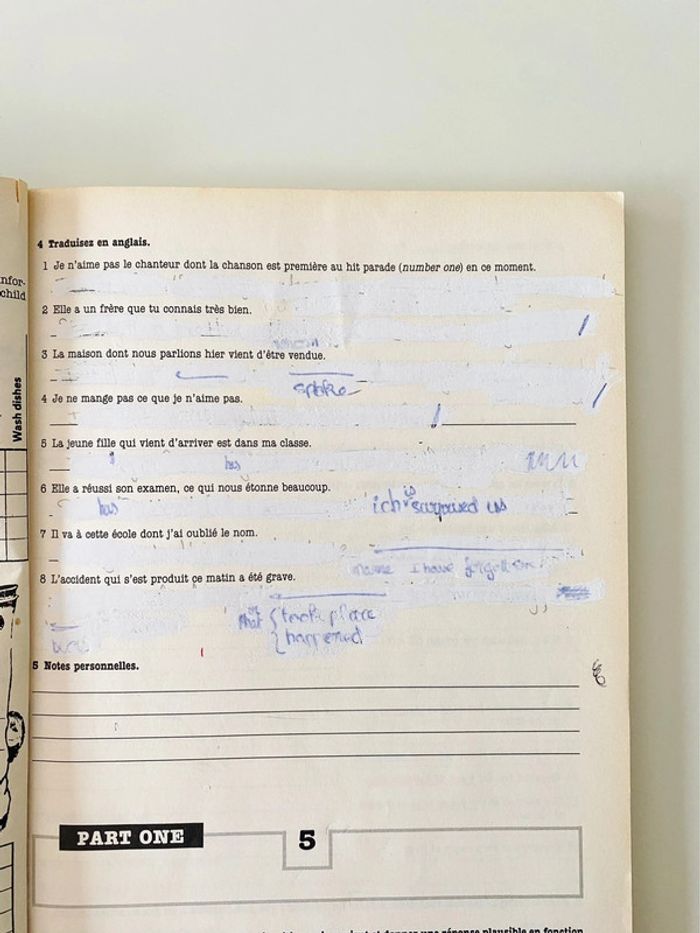 nfor-
child
Wash dishes
4 Traduisez en anglais.
1 Je n'aime pas le chanteur dont la chanson est première au hit parade (number one) en ce moment.
2 Elle a un frère que tu connais très bien.
3 La maison dont nous parlions hier vient d'être vendue.
spoke
4 Je ne mange pas ce que je n'aime pas.
5 La jeune fille qui vient d'arriver est dans ma classe.
has
6 Elle a réussi son examen, ce qui nous étonne beaucoup.
has ich is us
7 Il va à cette école dont j'ai oublié le nom.
name I have
8 L'accident qui s'est produit ce matin a été grave.
that { took place
{ happened
5 Notes personnelles.
PART ONE 5